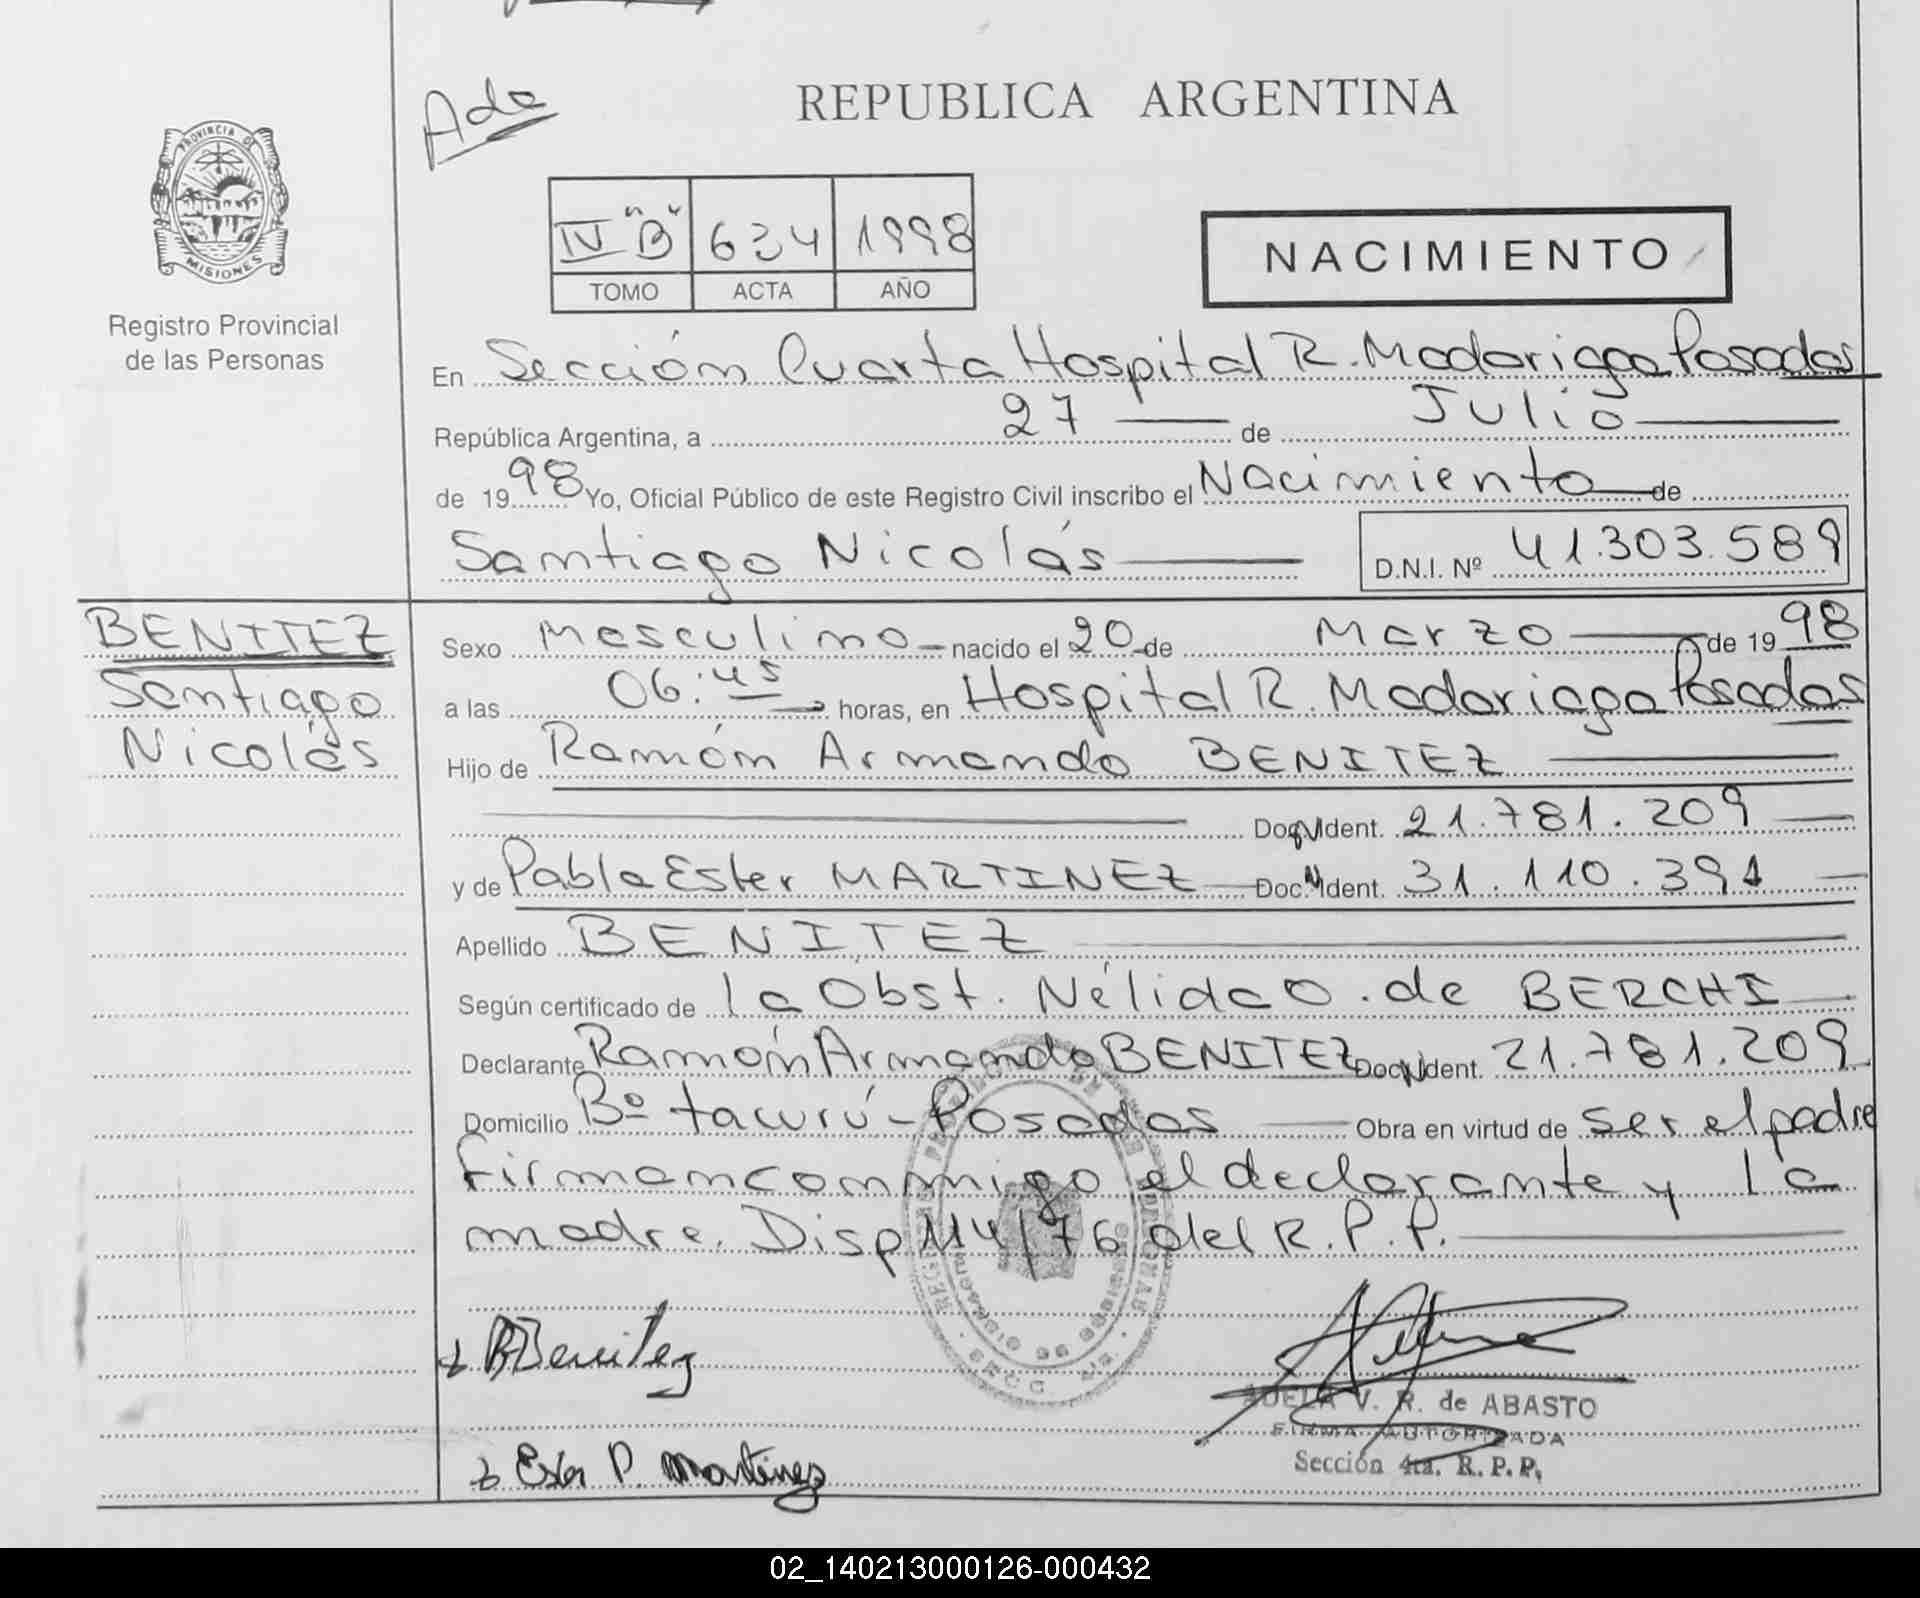 Ado
REPUBLICA ARGENTINA
PROVINCIA DE
MISIONES
Registro Provincial
de las Personas
IV "B" 634 1998
TOMO ACTA AÑO
NACIMIENTO
En Sección Cuarta Hospital R. Madariaga Posadas
República Argentina, a 27 de Julio
de 1998 Yo, Oficial Público de este Registro Civil inscribo el Nacimiento de
Santiago Nicolás D.N.I. Nº 41.303.589
BENITEZ
Santiago
Nicolás
Sexo Masculino nacido el 20 de Marzo de 1998
a las 06:45 horas, en Hospital R. Madariaga Posadas
Hijo de Ramón Armando BENITEZ
Doc. N Ident. 21.781.209
y de Pabla Ester MARTINEZ Doc. N Ident. 31.110.391
Apellido BENITEZ
Según certificado de la Obst. Nélida O. de BERCHI
Declarante Ramón Armando BENITEZ Doc. N Ident. 21.781.209
Domicilio Bº tacurú - Posadas Obra en virtud de ser el padre
firman conmigo el declarante y la
madre. Disp 114/76 del R.P.P.
Benitez
P. Martinez
ADELA V. R. de ABASTO
FIRMA AUTORIZADA
Sección 4ta. R. P. P.
02_140213000126-000432